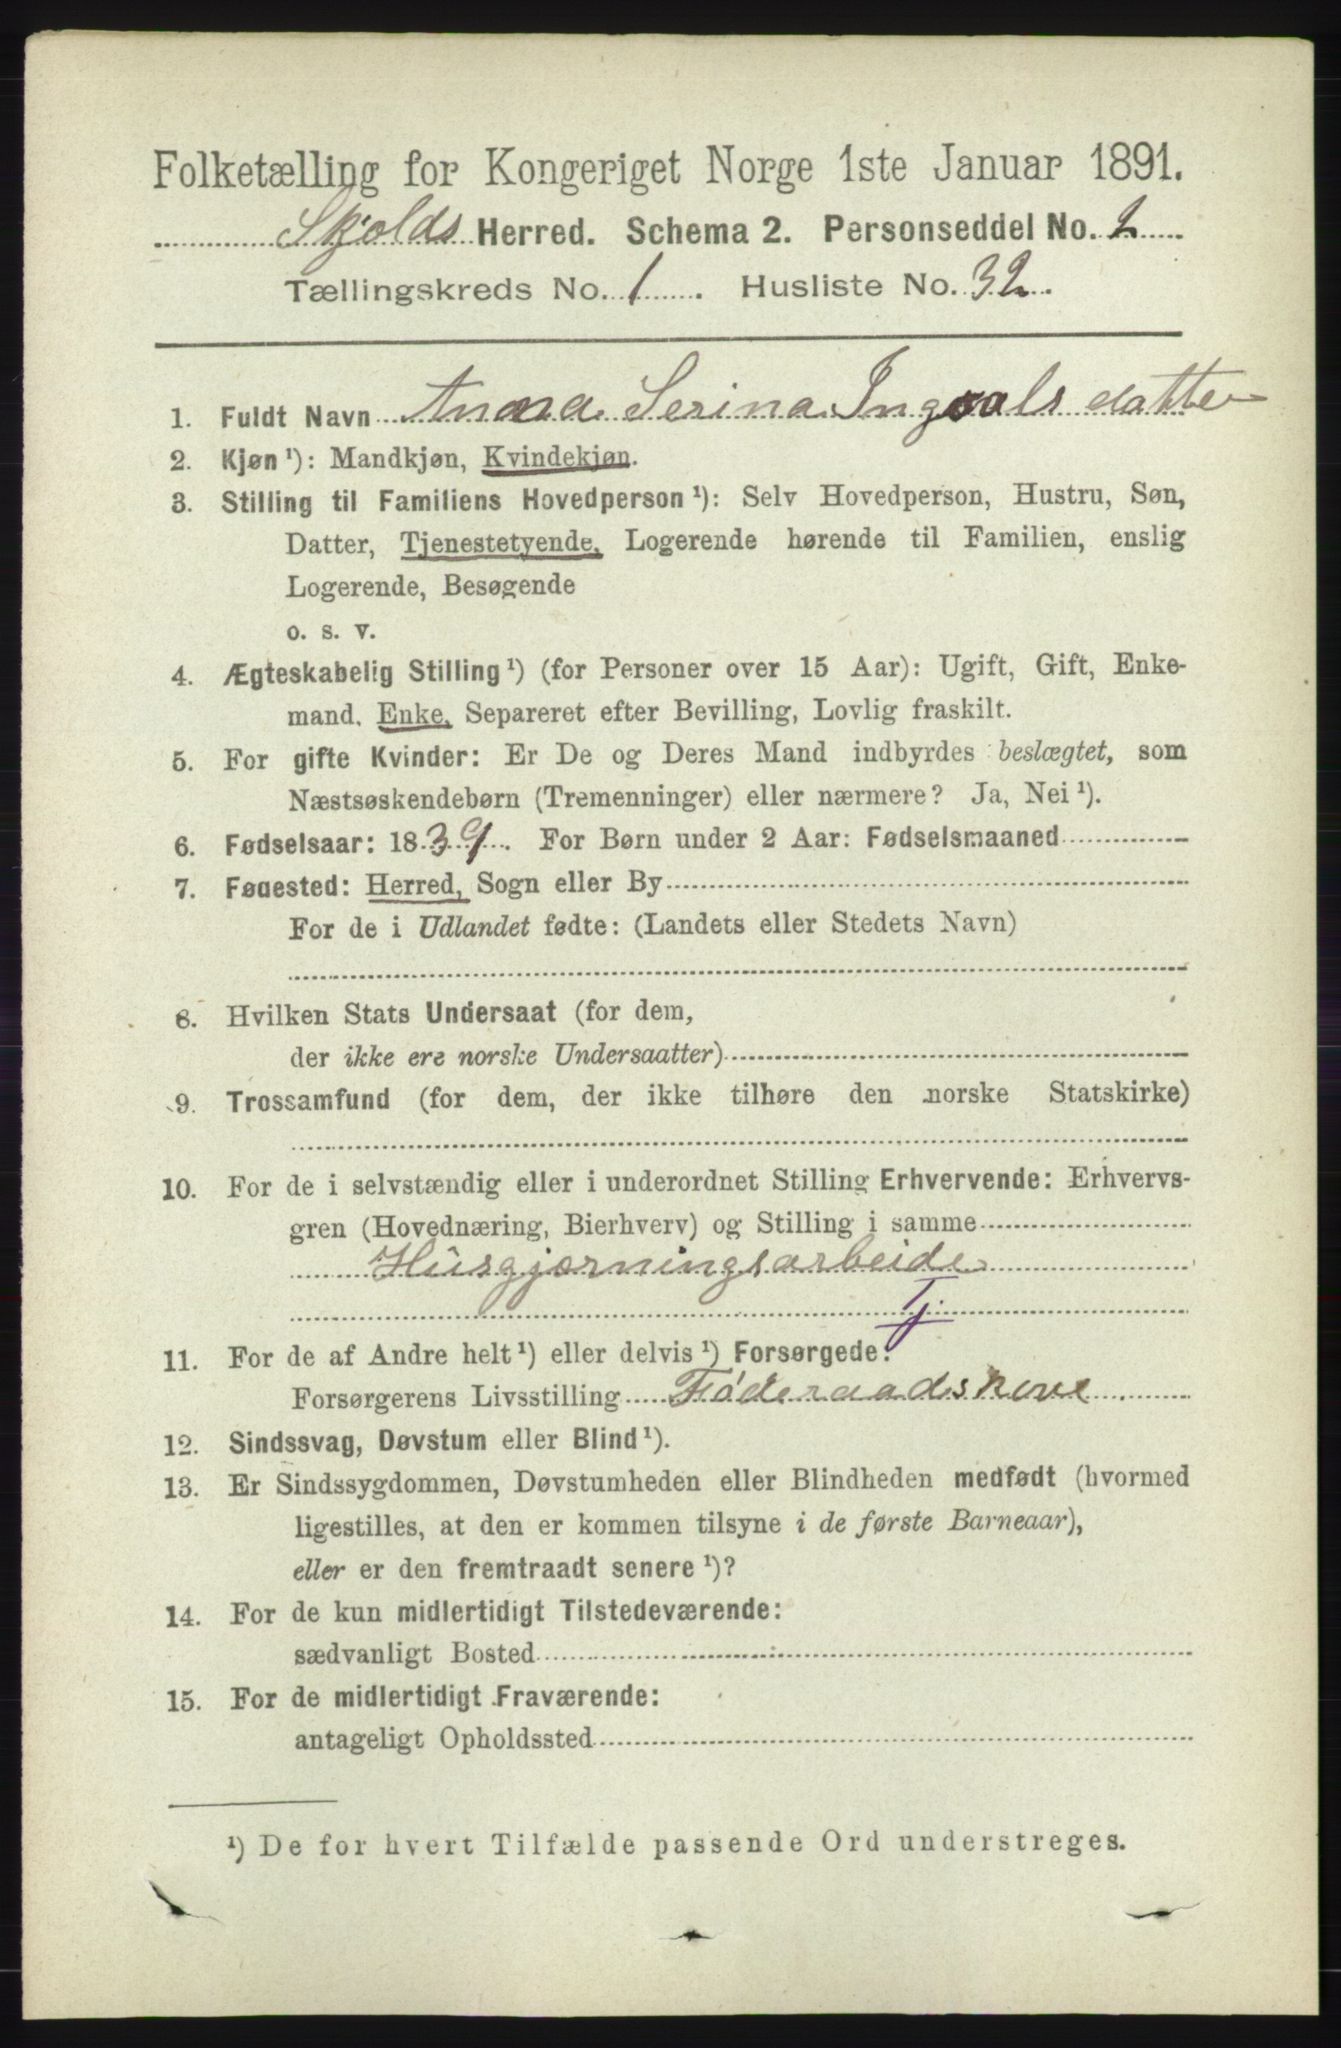 Folketælling for Kongeriget Norge 1ste Januar 1891.
Skjolds Herred. Schema 2. Personseddel No. 2
Tællingskreds No. 1. Husliste No. 32.
1. Fuldt Navn Anna Serina Ingvalsdatter
2. Kjøn ¹): Mandkjøn, Kvindekjøn.
3. Stilling til Familiens Hovedperson ¹): Selv Hovedperson, Hustru, Søn,
Datter, Tjenestetyende, Logerende hørende til Familien, enslig
Logerende, Besøgende
o. s. v.
4. Ægteskabelig Stilling ¹) (for Personer over 15 Aar): Ugift, Gift, Enke-
mand, Enke, Separeret efter Bevilling, Lovlig fraskilt.
5. For gifte Kvinder: Er De og Deres Mand indbyrdes beslægtet, som
Næstsøskendebørn (Tremenninger) eller nærmere? Ja, Nei ¹).
6. Fødselsaar: 1839. For Børn under 2 Aar: Fødselsmaaned
7. Fødested: Herred, Sogn eller By
For de i Udlandet fødte: (Landets eller Stedets Navn)
8. Hvilken Stats Undersaat (for dem,
der ikke ere norske Undersaatter)
9. Trossamfund (for dem, der ikke tilhøre den norske Statskirke)
10. For de i selvstændig eller i underordnet Stilling Erhvervende: Erhvervs-
gren (Hovednæring, Bierhverv) og Stilling i samme
Husgjærningsarbeide
Tj.
11. For de af Andre helt ¹) eller delvis ¹) Forsørgede:
Forsørgerens Livsstilling Føderaadskone
12. Sindssvag, Døvstum eller Blind ¹).
13. Er Sindssygdommen, Døvstumheden eller Blindheden medfødt (hvormed
ligestilles, at den er kommen tilsyne i de første Barneaar),
eller er den fremtraadt senere ¹)?
14. For de kun midlertidigt Tilstedeværende:
sædvanligt Bosted
15. For de midlertidigt Fraværende:
antageligt Opholdssted
¹) De for hvert Tilfælde passende Ord understreges.